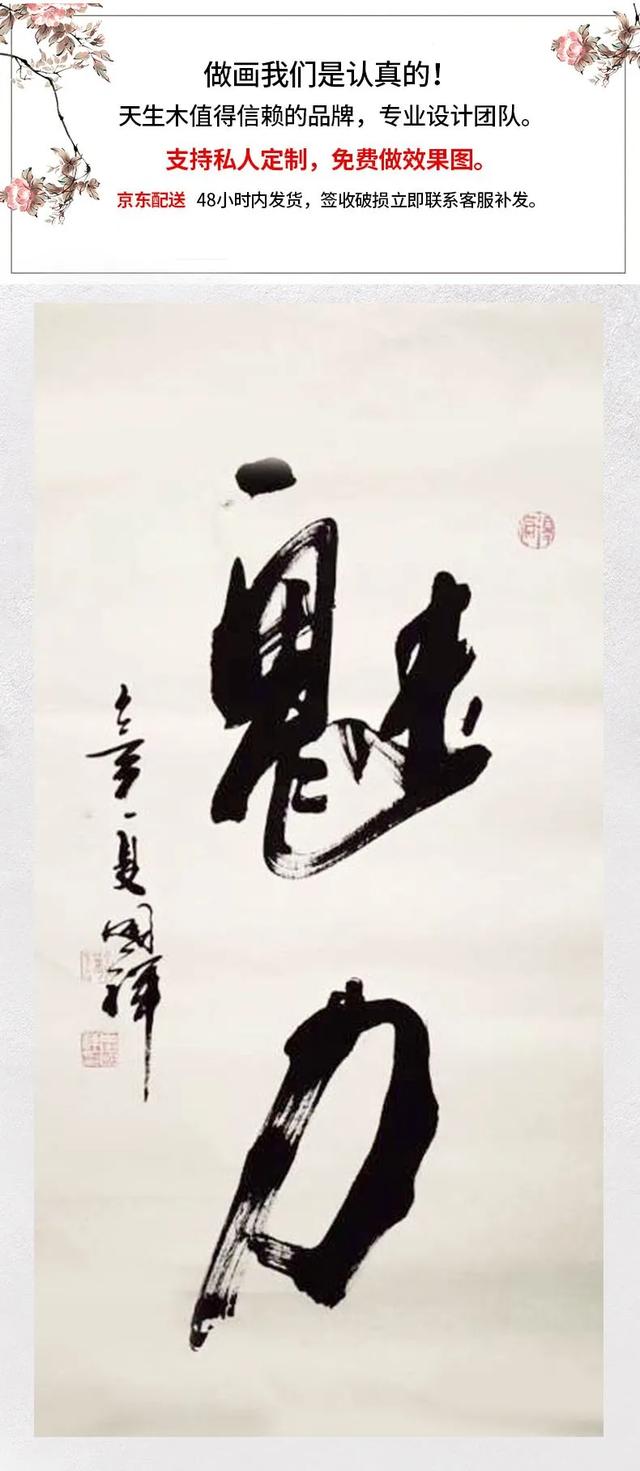 做画我们是认真的！
天生木值得信赖的品牌，专业设计团队。
支持私人定制，免费做效果图。
京东配送 48小时内发货，签收破损立即联系客服补发。
魅力
夏國祥